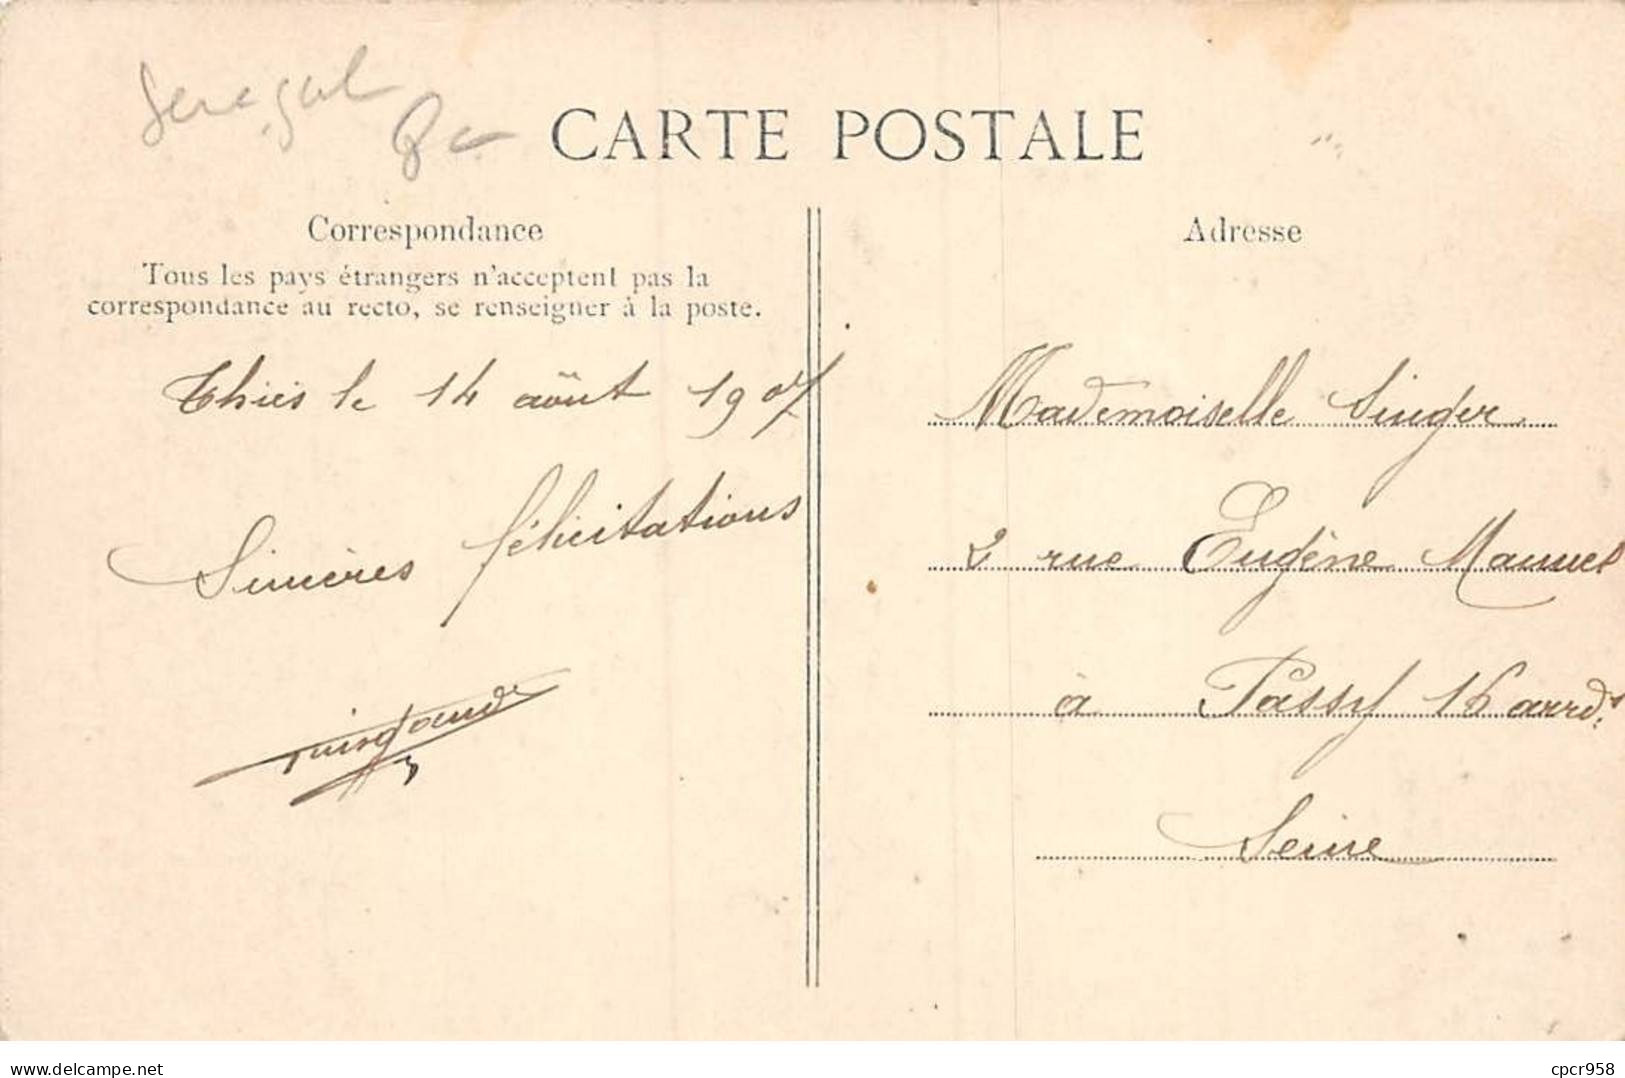 Senegal
CARTE POSTALE
Correspondance
Tous les pays étrangers n'acceptent pas la
correspondance au recto, se renseigner à la poste.
Thiès le 14 août 1907
Sincères félicitations
Adresse
Mademoiselle Singer
2 rue Eugène Manuel
à Passy 16 arrdt
Seine
delcampe.net
cpcr958